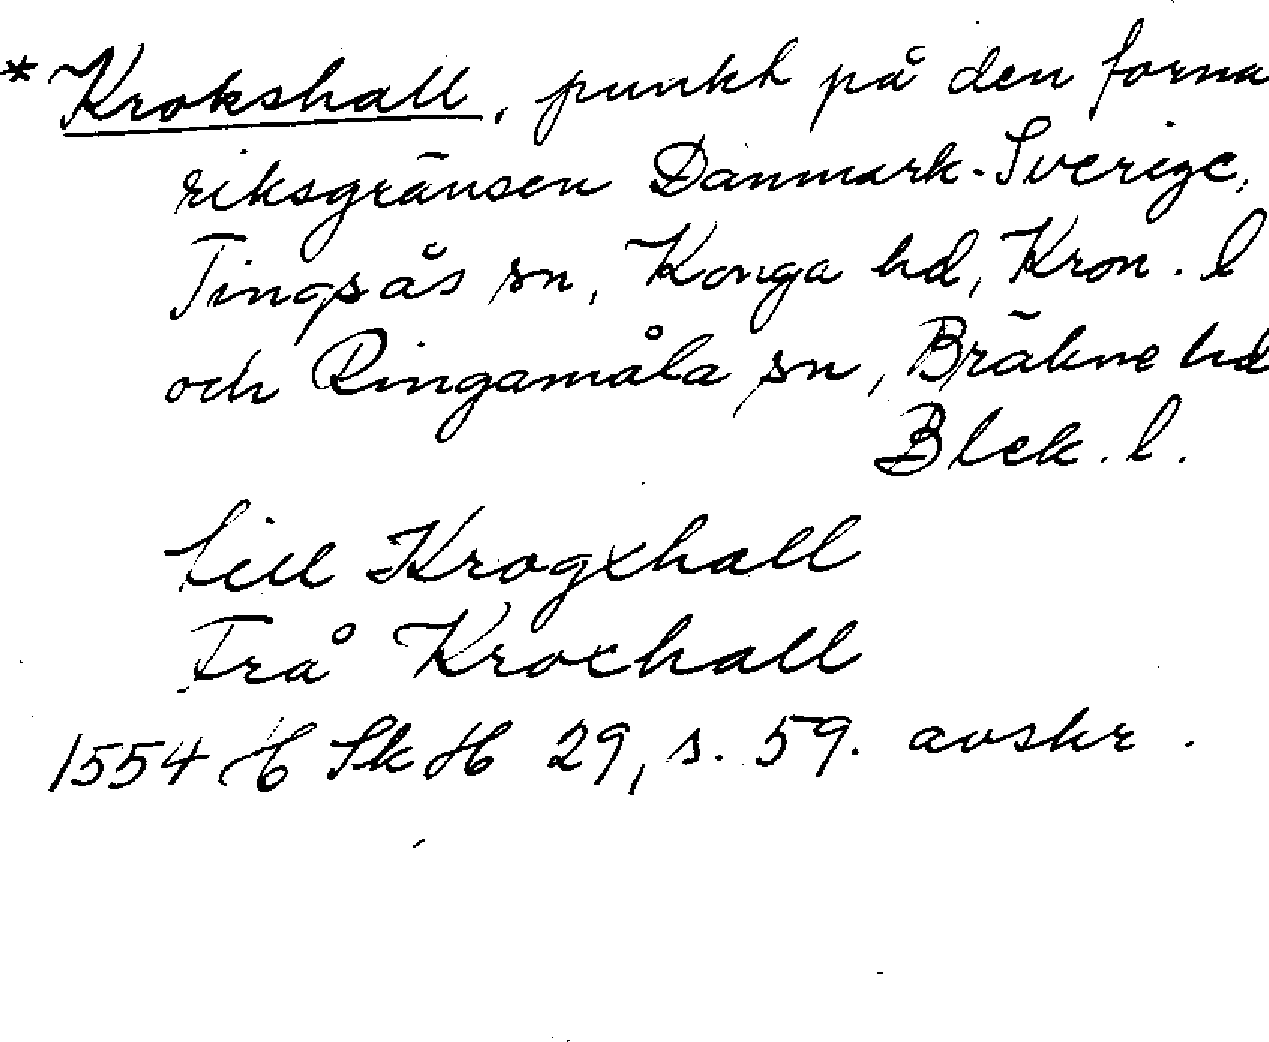 * Krokshall, punkt på den forna
riksgränsen Danmark-Sverige,
Tingsås sn, Konga hd, Kron. l
och Ringamåla sn, Bräkne hd
Blek. l.
till Krogxhall
Frå Kroxhall
1554 HSkH 29, s. 59. avskr.